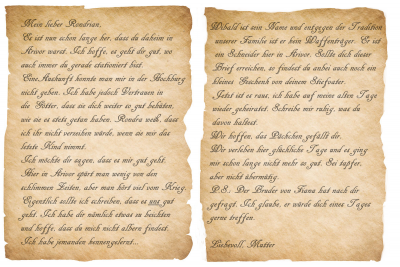 Mein lieber Rondrian,
Es ist nun schon lange her, dass du daheim in
Arivor warst. Ich hoffe, es geht dir gut, wo
auch immer du gerade stationiert bist.
Eine Auskunft konnte man mir in der Hochburg
nicht geben. Ich habe jedoch Vertrauen in
die Götter, dass sie dich weiter so gut behüten,
wie sie es stets getan haben. Rondra weiß, dass
ich ihr nicht verzeihen würde, wenn sie mir das
letzte Kind nimmt.
Ich möchte dir sagen, dass es mir gut geht.
Hier in Arivor spürt man wenig von den
schlimmen Zeiten, aber man hört viel vom Krieg.
Eigentlich sollte ich schreiben, dass es uns gut
geht. Ich habe dir nämlich etwas zu beichten
und hoffe, dass du mich nicht albern findest.
Ich habe jemanden kennengelernt...
ist sein Name und entgegen der Tradition
unserer Familie ist er kein Waffenträger. Er ist
ein Schneider hier in Arivor. Sollte dich dieser
Brief erreichen, so findest du anbei auch noch ein
kleines Geschenk von deinem Stiefvater.
Jetzt ist es raus, ich habe auf meine alten Tage
wieder geheiratet. Schreibe mir ruhig, was du
davon hältst.
Wir hoffen, das Päckchen gefällt dir.
Wir verleben hier glückliche Tage und es ging
mir schon lange nicht mehr so gut. Sei tapfer,
aber nicht übermütig.
P.S.: Der Bruder von hat nach dir
gefragt. Ich glaube, er würde dich eines Tages
gerne treffen.
Liebevoll, Mutter